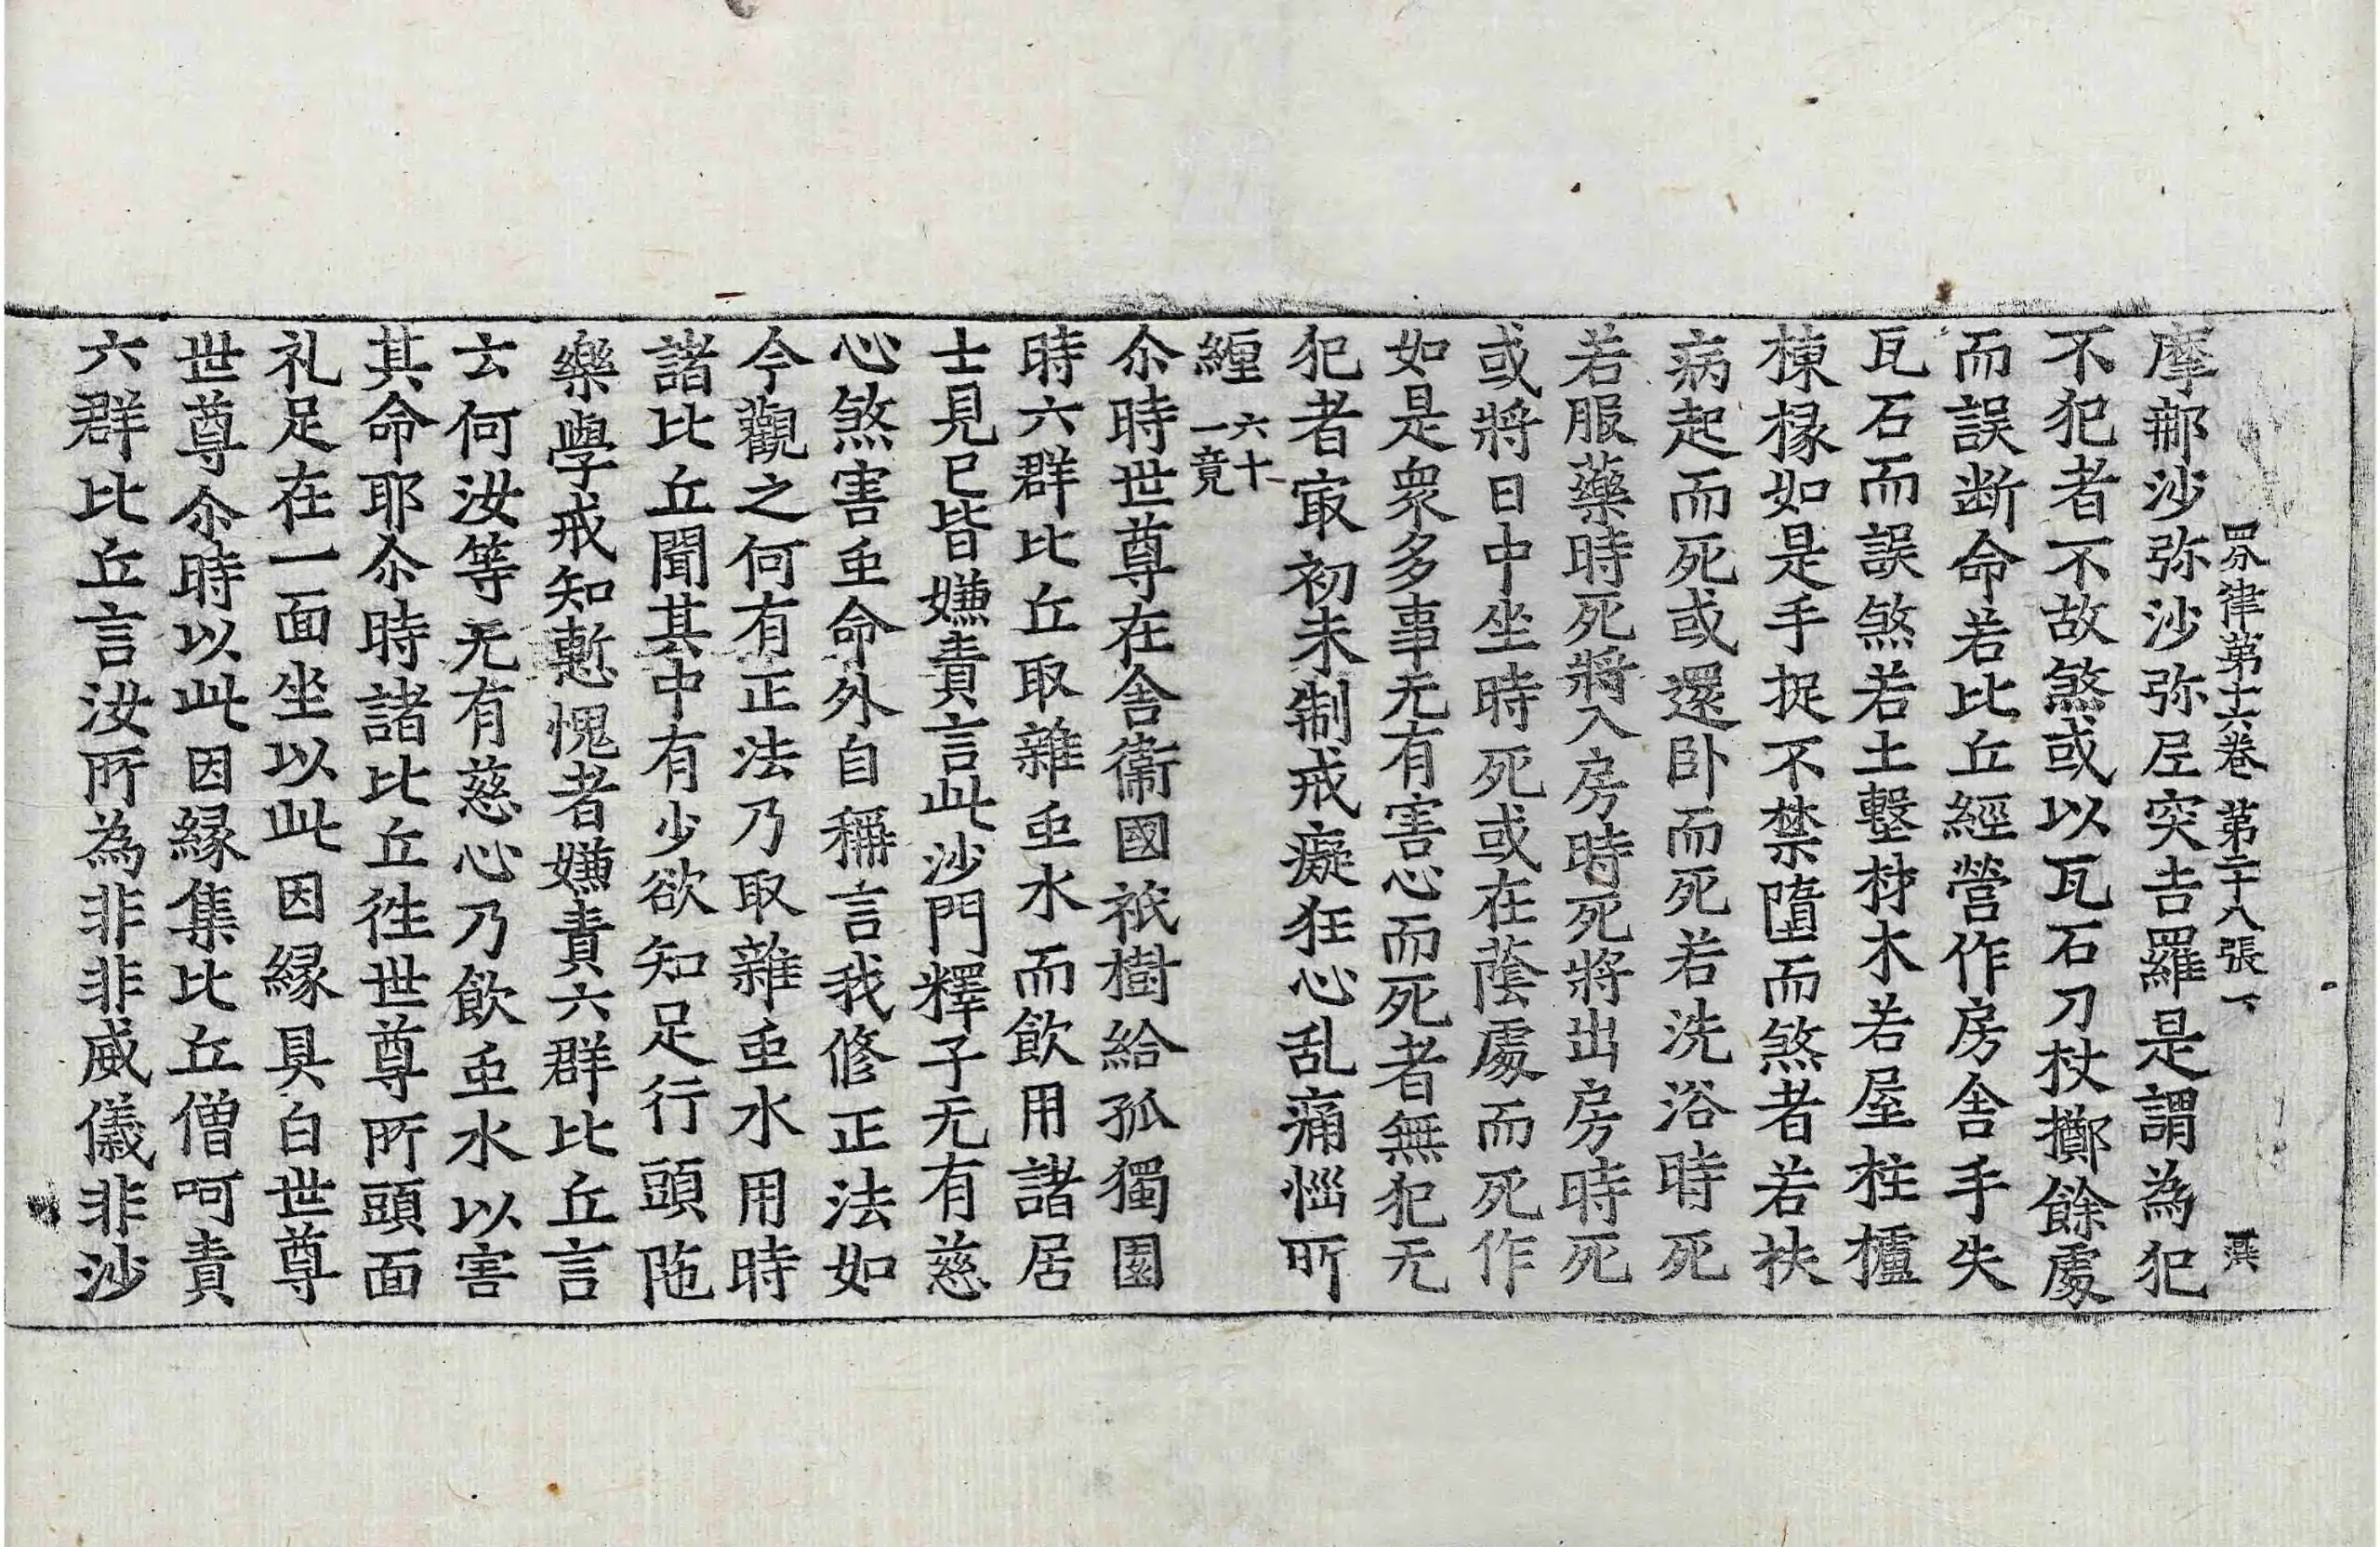 四分律第十六卷 第二十八張 下
摩那沙弥沙弥尼突吉羅是謂為犯
不犯者不故煞或以瓦石刀杖擲餘處
而誤断命若比丘經營作房舍手失
瓦石而誤煞若土墼材木若屋柱櫨
棟椽如是手捉不禁墮而煞者若扶
病起而死或還卧而死若洗浴時死
若服藥時死將入房時死將出房時死
或將日中坐時死或在蔭處而死作
如是衆多事无有害心而死者無犯无
犯者冣初未制戒癡狂心乱痛惱所
纏六十一竟
尒時世尊在舍衛國祇樹給孤獨園
時六群比丘取雜虫水而飲用諸居
士見已皆嫌責言此沙門釋子无有慈
心煞害虫命外自稱言我修正法如
今觀之何有正法乃取雜虫水用時
諸比丘聞其中有少欲知足行頭陁
樂學戒知慙愧者嫌責六群比丘言
云何汝等无有慈心乃飲虫水以害
其命耶尒時諸比丘徃世尊所頭面
礼足在一面坐以此因緣具白世尊
世尊尒時以此因緣集比丘僧呵責
六群比丘言汝所為非非威儀非沙